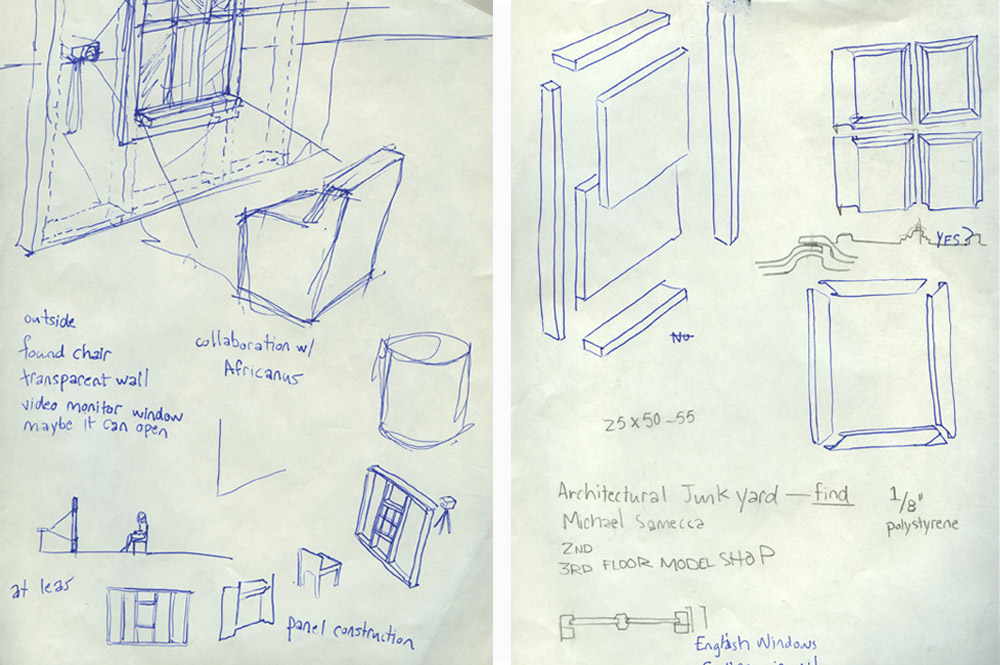 outside
found chair
transparent wall
video monitor window
maybe it can open
collaboration w/
Africanus
at leas
panel construction
YES?
No
25 x 50 - 55
Architectural Junk yard — find
Michael Samecca
2ND
3RD FLOOR MODEL SHOP
1/8"
polystyrene
English Windows